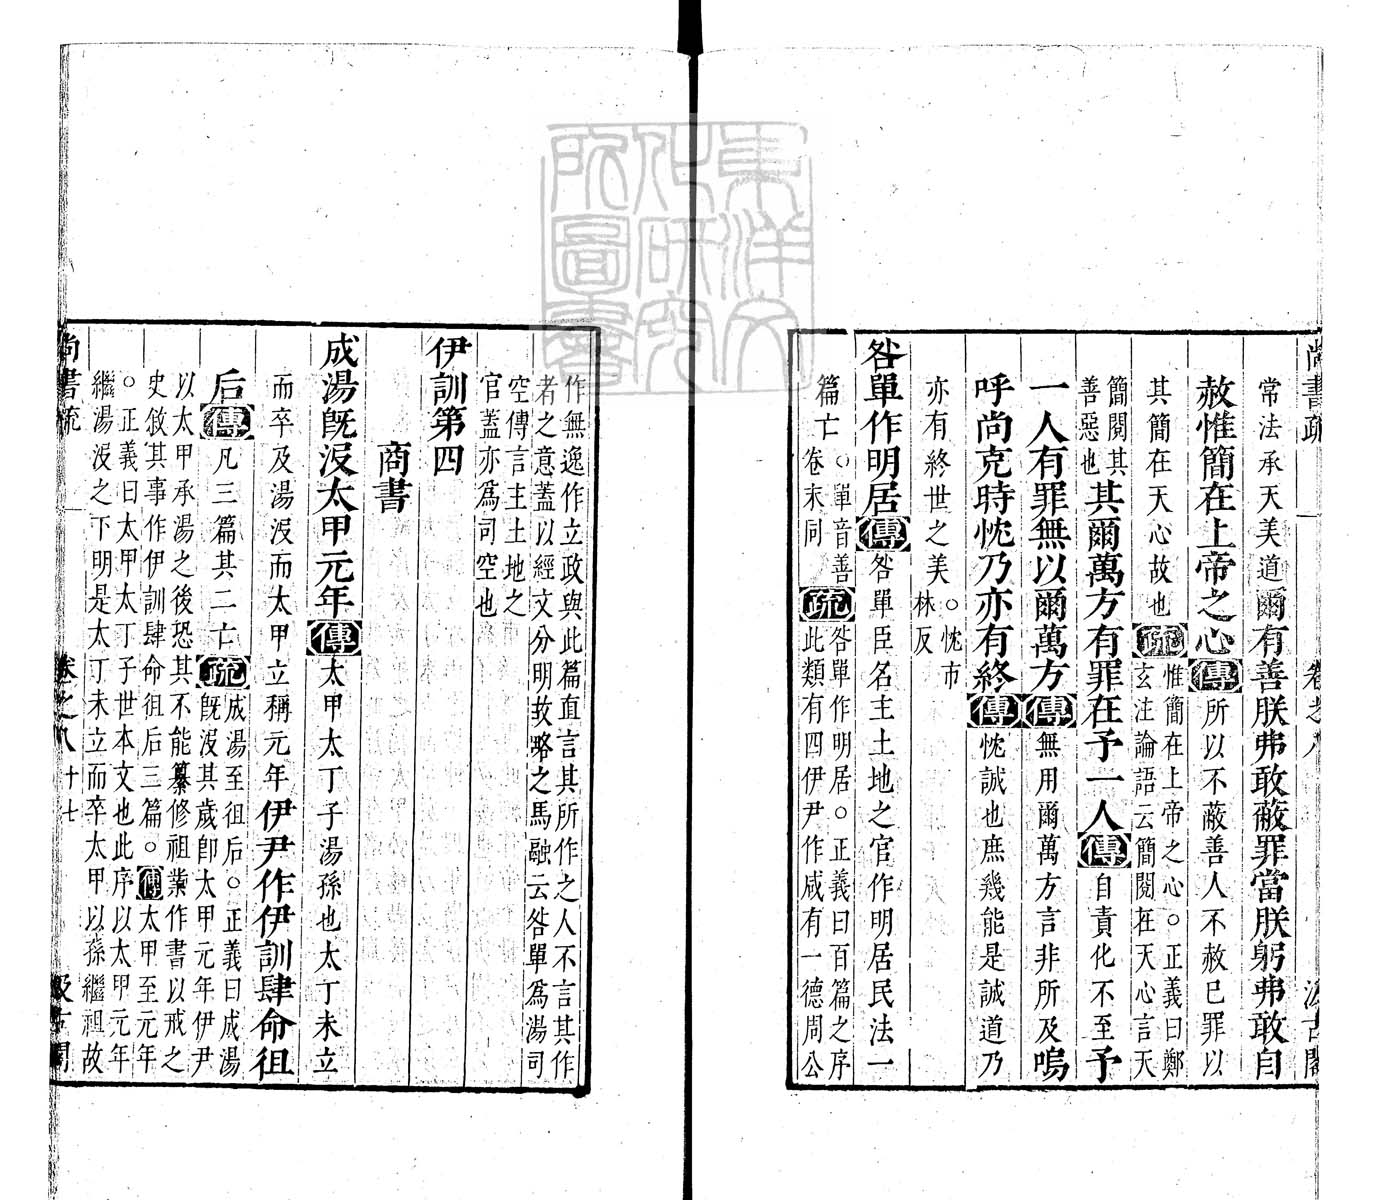 尚書疏 卷之八 汲古閣
常法承天美道爾有善朕弗敢蔽罪當朕躬弗敢自
赦惟簡在上帝之心傳所以不蔽善人不赦己罪以
其簡在天心故也疏惟簡在上帝之心○正義曰鄭
玄注論語云簡閱在天心言天
簡閱其
善惡也其爾萬方有罪在予一人傳自責化不至予
一人有罪無以爾萬方傳無用爾萬方言非所及嗚
呼尚克時忱乃亦有終傳忱誠也庶幾能是誠道乃
亦有終世之美○忱市
林反
咎單作明居傳咎單臣名主土地之官作明居民法一
篇亡○單音善
卷末同疏咎單作明居○正義曰百篇之序
此類有四伊尹作咸有一德周公
作無逸作立政與此篇直言其所作之人不言其作
者之意蓋以經文分明故略之馬融云咎單為湯司
空傳言主土地之
官蓋亦為司空也
伊訓第四
商書
成湯既沒太甲元年傳太甲太丁子湯孫也太丁未立
而卒及湯沒而太甲立稱元年伊尹作伊訓肆命徂
后傳凡三篇其二亡疏成湯至徂后○正義曰成湯
既沒其歲即太甲元年伊尹
以太甲承湯之後恐其不能纂修祖業作書以戒之
史敘其事作伊訓肆命徂后三篇○傳太甲至元年
○正義曰太甲太丁子世本文也此序以太甲元年
繼湯沒之下明是太丁未立而卒太甲以孫繼祖故
尚書疏 卷之八 十七 汲古閣
東洋文
化研究
所圖書